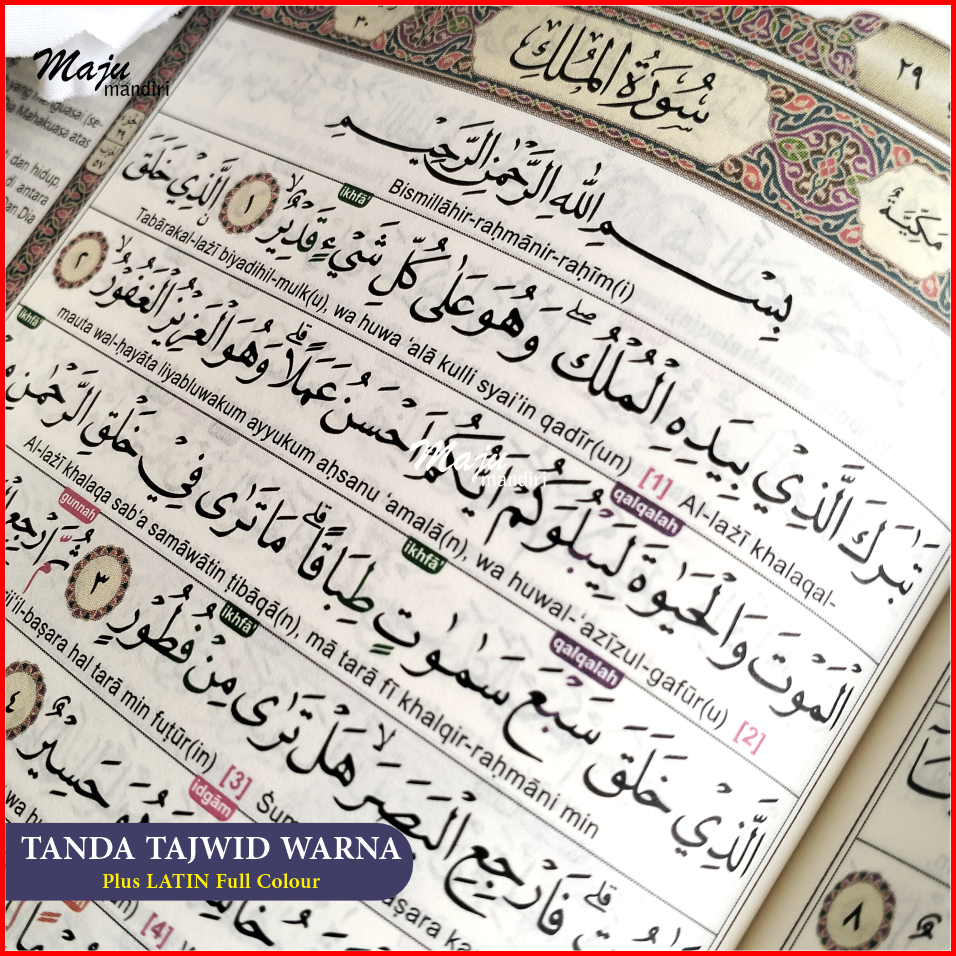 Maju
mandiri
٣٠
سُوْرَةُ الْمُلْكِ
٢٩
مَكِّيَّةٌ
yang menguasai (se-
Mahakuasa atas
dan hidup,
antara
Dan Dia
بِسْمِ اللّٰهِ الرَّحْمٰنِ الرَّحِيْمِ
Bismillāhir-raḥmānir-raḥīm(i)
تَبٰرَكَ الَّذِيْ بِيَدِهِ الْمُلْكُۖ وَهُوَ عَلٰى كُلِّ شَيْءٍ قَدِيْرٌۙ ١ الَّذِيْ خَلَقَ
ikhfā'
Tabārakal-lażī biyadihil-mulk(u), wa huwa ‘alā kulli syai’in qadīr(un) [1] Al-lażī khalaqal-
الْمَوْتَ وَالْحَيٰوةَ لِيَبْلُوَكُمْ اَيُّكُمْ اَحْسَنُ عَمَلًاۗ وَهُوَ الْعَزِيْزُ الْغَفُوْرُۙ ٢
qalqalah
mauta wal-ḥayāta liyabluwakum ayyukum aḥsanu ‘amalā(n), wa huwal-‘azīzul-gafūr(u) [2]
الَّذِيْ خَلَقَ سَبْعَ سَمٰوٰتٍ طِبَاقًاۗ مَا تَرٰى فِيْ خَلْقِ الرَّحْمٰنِ
qalqalah
ikhfā'
ikhfā'
Al-lażī khalaqa sab‘a samāwātin ṭibāqā(n), mā tarā fī khalqir-raḥmāni min
فَارْجِعِ الْبَصَرَۙ هَلْ تَرٰى مِنْ فُطُوْرٍ ٣ ثُمَّ ارْجِعِ
ikhfā'
gunnah
-baṣara hal tarā min fuṭūr(in) [3] Ṡum
idgām
حَسِيْرٌ ٤
[4]
٨
Maju
mandiri
TANDA TAJWID WARNA
Plus LATIN Full Colour